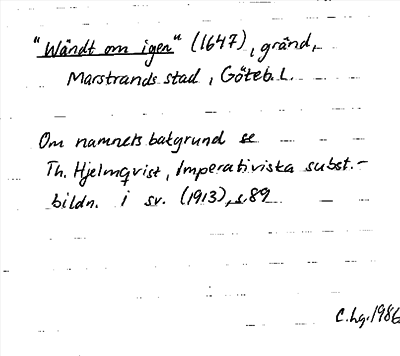 "Wändt om igen" (1647), gränd,
Marstrands stad, Göteb. L.
Om namnets bakgrund se
Th. Hjelmqvist, Imperativiska subst.-
bildn. i sv. (1913), s. 89
C. Lg. 1986